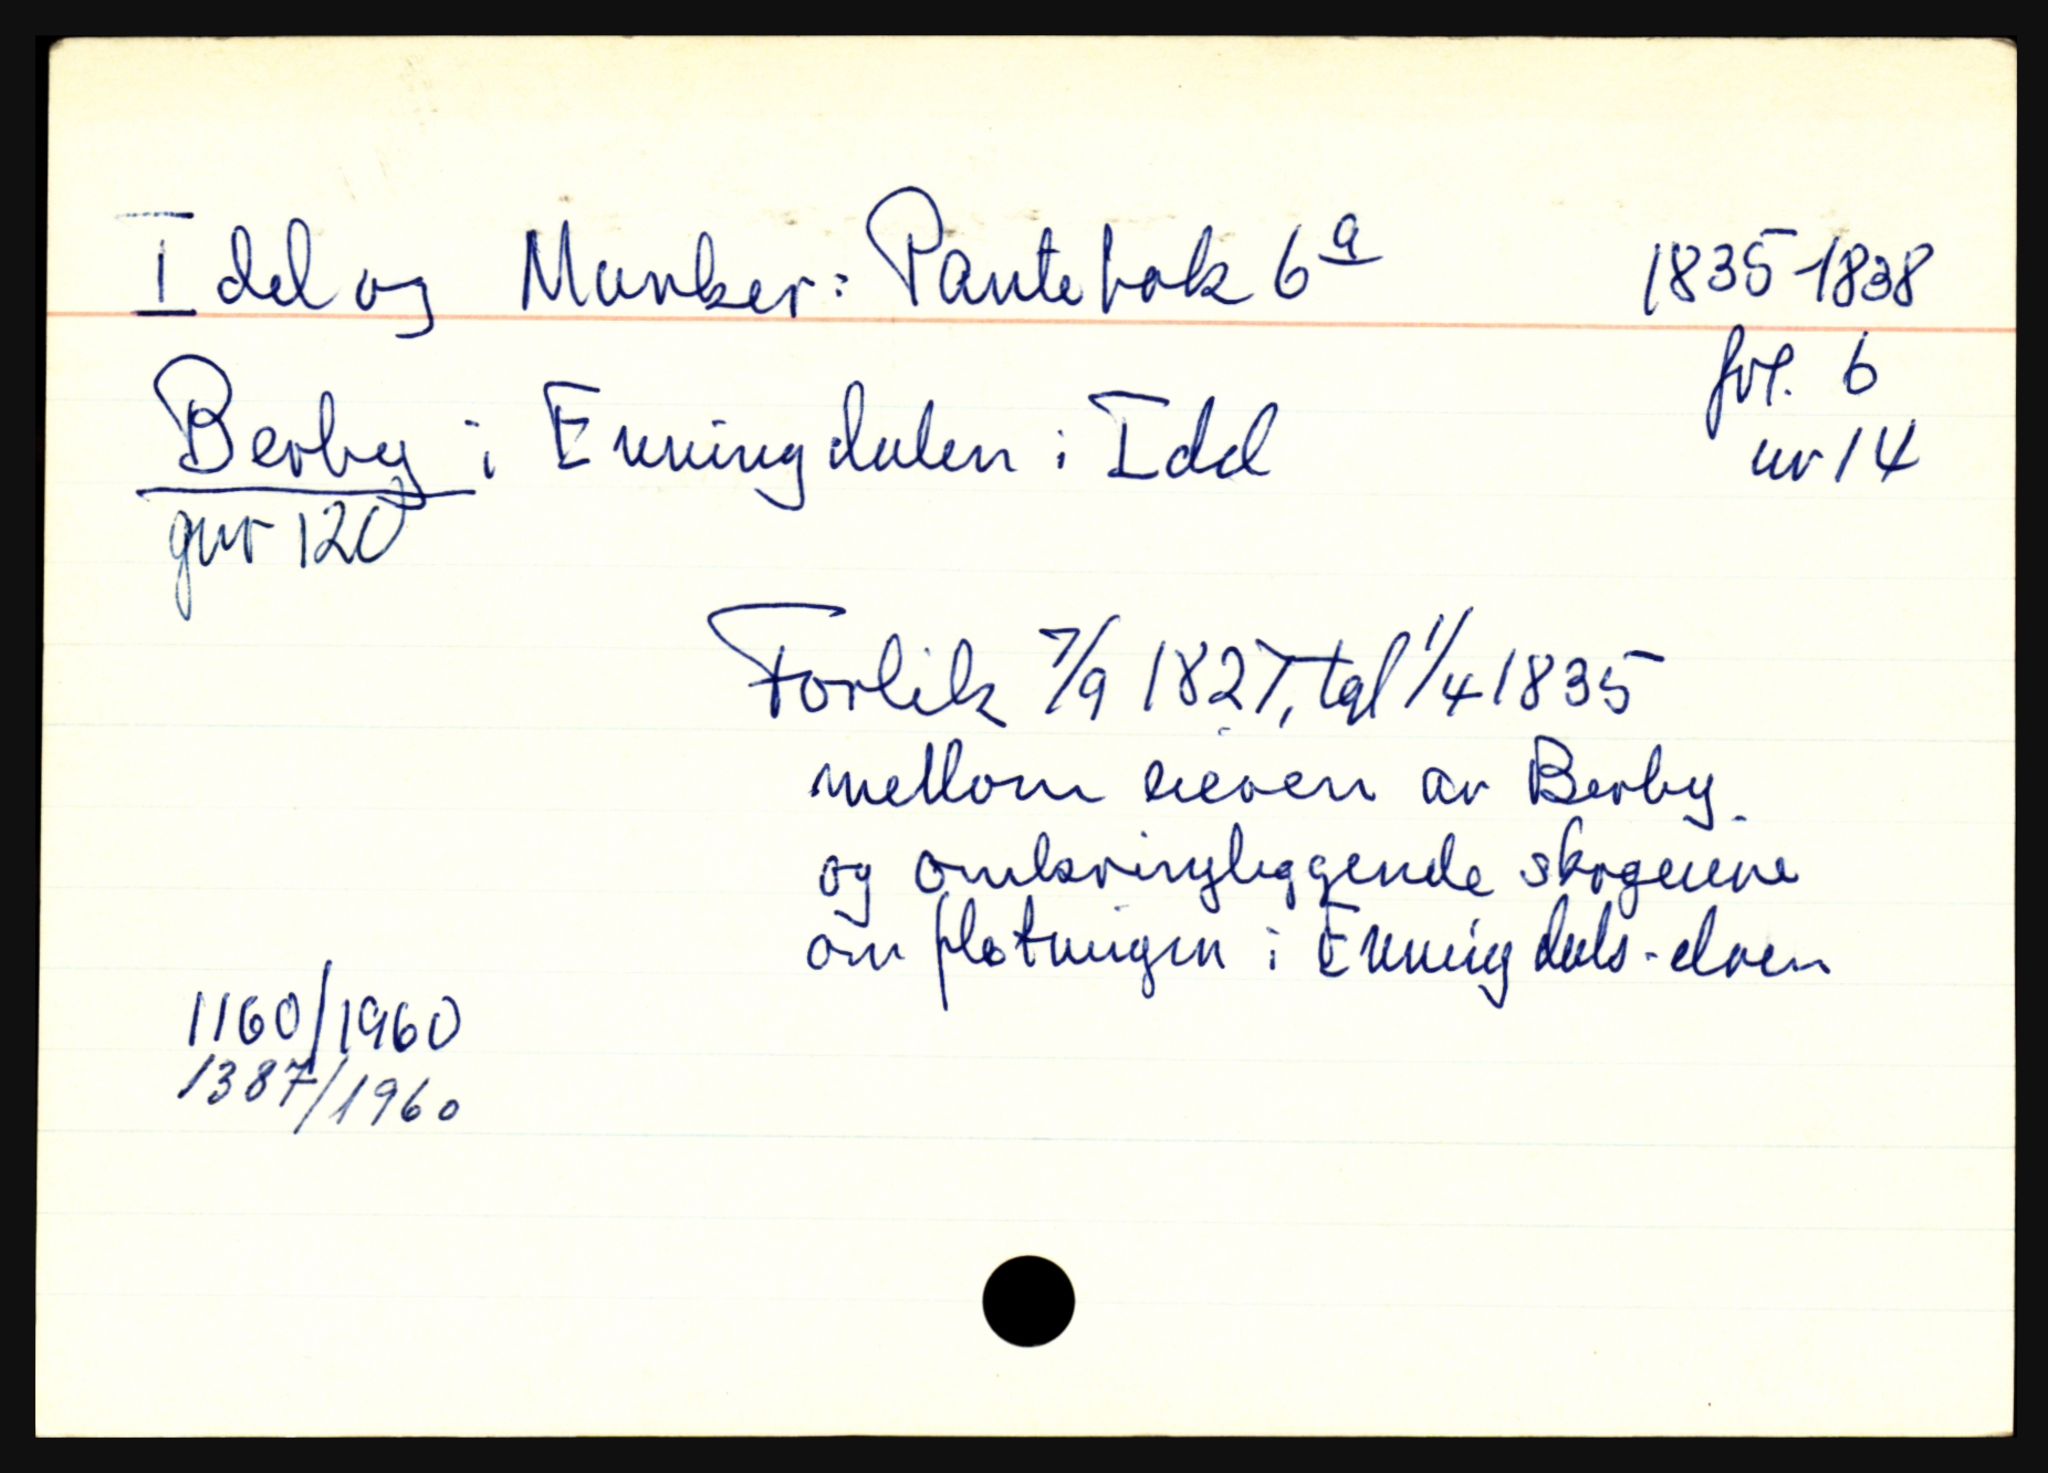 Idd og Marker: Pantebok 6a 1835-1838
fol. 6
Berby i Enningdalen i Idd nr 14
gnr 120
Forlik 7/9 1827, tgl 1/4 1835
mellom eieren av Berby
og omkringliggende skogeiere
om fløtningen i Enningdals-elven
1160/1960
1387/1960